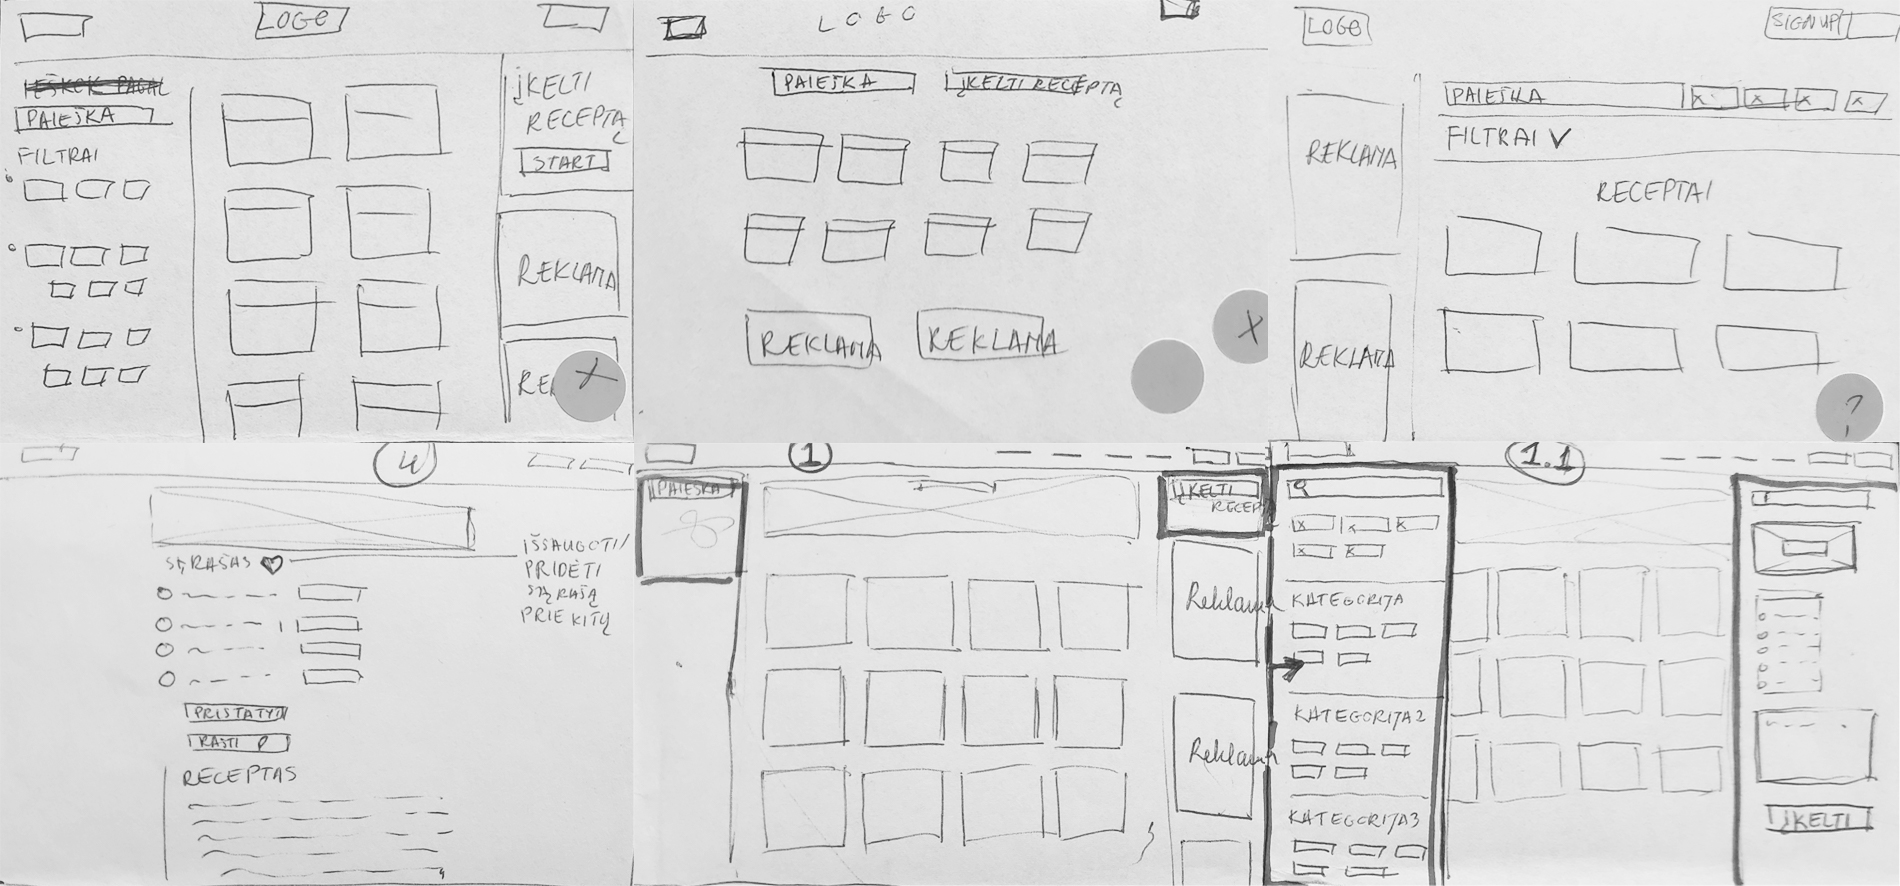 LOGO
IEŠKOK PAGAL
PAIEŠKA
FILTRAI
ĮKELTI
RECEPTĄ
START
REKLAMA
RE
X
LOGO
PAIEŠKA
ĮKELTI RECEPTĄ
REKLAMA
REKLAMA
X
LOGO
SIGN UP
REKLAMA
REKLAMA
PAIEŠKA
X
X
X
X
FILTRAI V
RECEPTAI
?
4
SĄRAŠAS
IŠSAUGOTI/
PRIDĖTI
SĄRAŠĄ
PRIE KITŲ
PRISTATYTI
RASTI
RECEPTAS
1
PAIEŠKA
ĮKELTI
RECEPT
Reklama
Reklama
1.1
x
x
x
x
x
KATEGORIJA
KATEGORIJA2
KATEGORIJA3
ĮKELTI